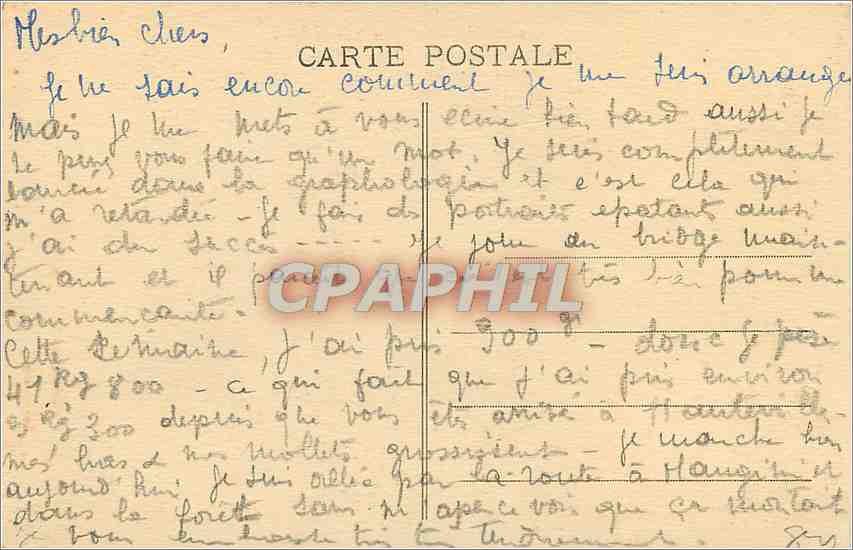 Mes bien chers,
CARTE POSTALE
Je ne sais encore comment je me suis arrangée
mais je me mets à vous écrire bien tard aussi je
ne puis vous faire qu'un mot. Je suis complètement
lancée dans la graphologie et c'est cela qui
m'a retardée - Je fais des portraits epatants aussi
j'ai du succès ----- Je joue au bridge main-
tenant et il parait très bien pour une
CPAPHIL
commençante.
Cette semaine, j'ai pris 900 gr - donc je pèse
41 kg 800 - ce qui fait que j'ai pris environ
kg 300 depuis que vous êtes arrivé à Hauteville
mes bras & mes mollets grossissent - je marche bien
aujourd'hui je suis allée par la route à Mangini et
dans la forêt sans m'apercevoir que ça montait
Je vous embrasse très très tendrement.